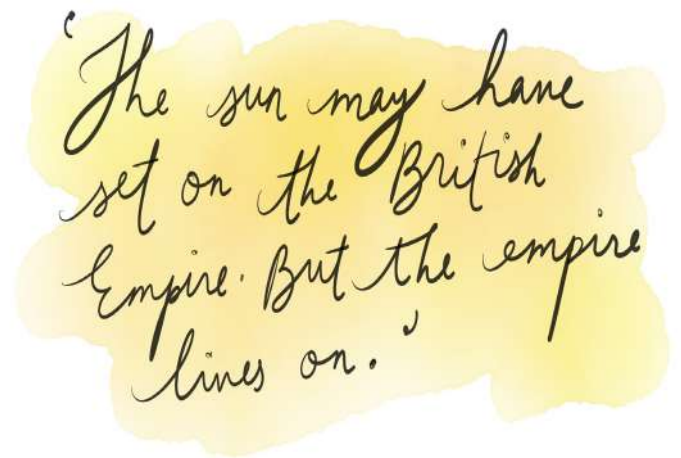 'The sun may have
set on the British
Empire. But the empire
lives on.'